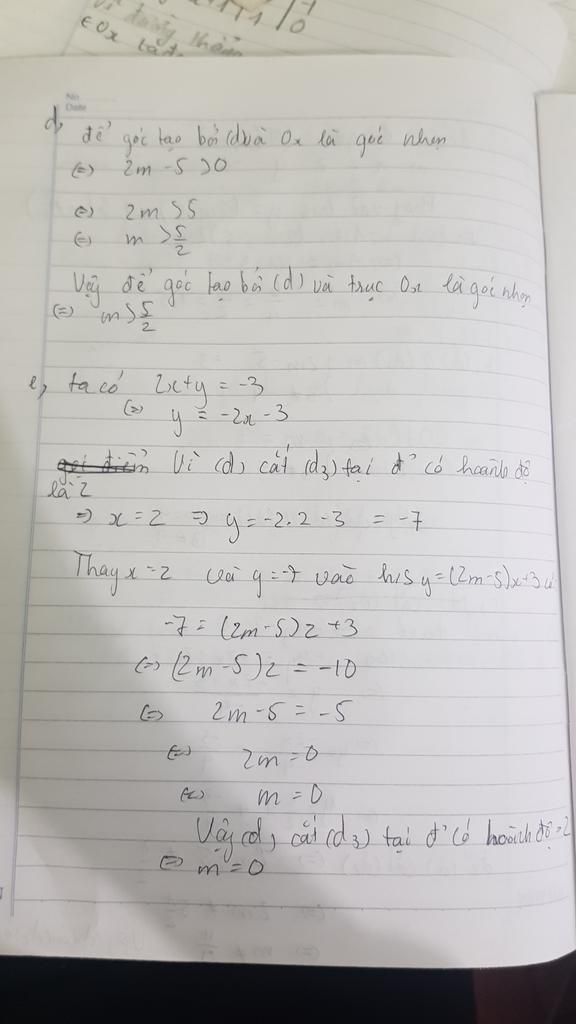 ∈ Ox là đt
No
Date
d, để góc tạo bởi (d) và Ox là góc nhọn
(=) 2m - 5 > 0
(=) 2m > 5
(=) m > 5/2
Vậy để góc tạo bởi (d) và trục Ox là góc nhọn
(=) m > 5/2
e, ta có 2x + y = -3
(=) y = -2x - 3
gọi điểm Vì (d) cắt (d3) tại đ' có hoành độ
là 2
=> x = 2 => y = -2.2 - 3 = -7
Thay x = 2 và y = -7 vào h/s y = (2m-5)x+3
-7 = (2m-5)2 +3
(=) (2m-5)2 = -10
(=) 2m-5 = -5
(=) 2m = 0
(=) m = 0
Vậy (d) cắt (d3) tại đ' có hoành độ = 2
(=) m = 0